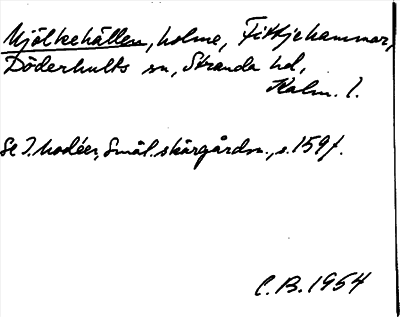 Mjölkehällen, holme, Fittjehammar,
Döderhults sn, Stranda hd,
Kalm. l.
Se I. Modéer, Smål. skärgårdsn., s. 159 f.
C. B. 1954